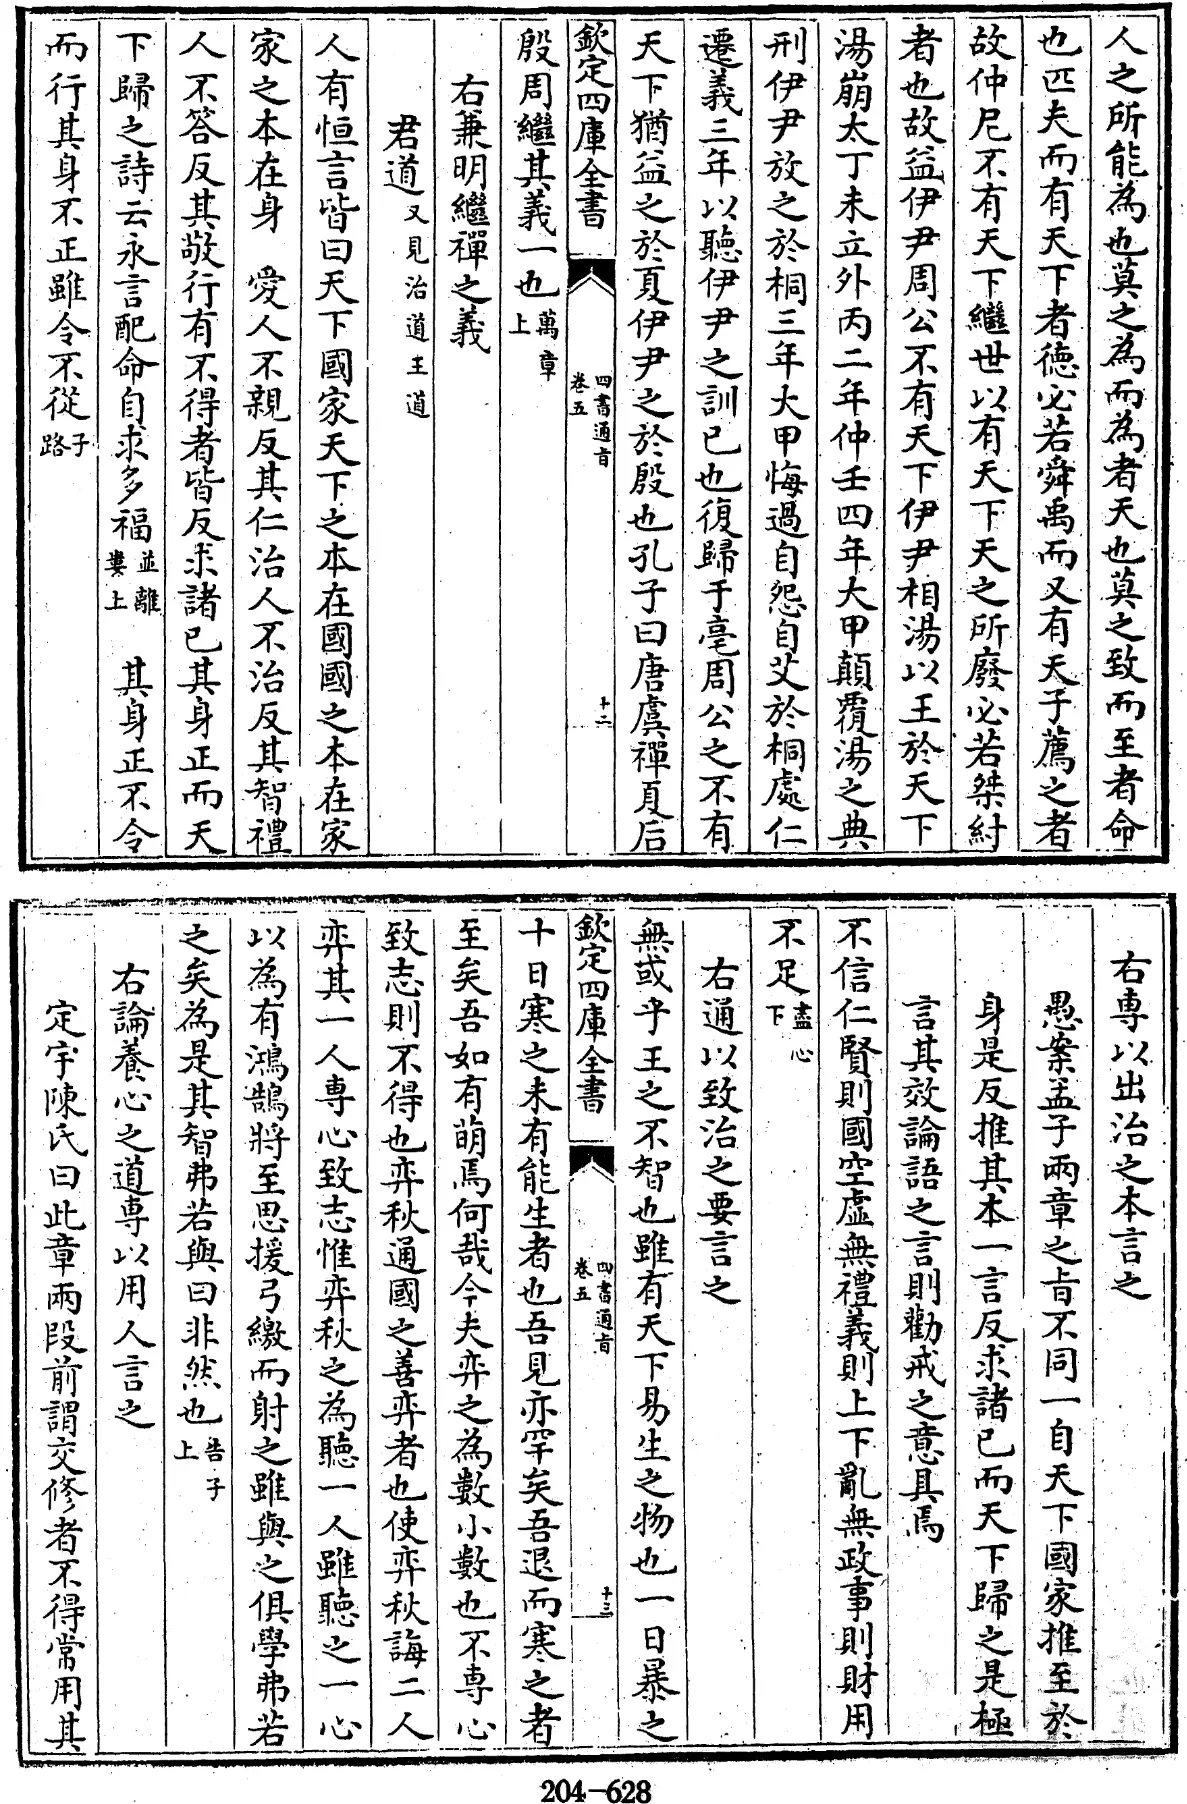 人之所能為也莫之為而為者天也莫之致而至者命
也匹夫而有天下者德必若舜禹而又有天子薦之者
故仲尼不有天下繼世以有天下天之所廢必若桀紂
者也故益伊尹周公不有天下伊尹相湯以王於天下
湯崩太丁未立外丙二年仲壬四年大甲顛覆湯之典
刑伊尹放之於桐三年大甲悔過自怨自艾於桐處仁
遷義三年以聽伊尹之訓已也復歸于亳周公之不有
天下猶益之於夏伊尹之於殷也孔子曰唐虞禪夏后
欽定四庫全書 四書通旨 卷五 十二
殷周繼其義一也萬章上
右兼明繼禪之義
君道又見治道王道
人有恒言皆曰天下國家天下之本在國國之本在家
家之本在身 愛人不親反其仁治人不治反其智禮
人不答反其敬行有不得者皆反求諸已其身正而天
下歸之詩云永言配命自求多福並離婁上 其身正不令
而行其身不正雖令不從子路
右專以出治之本言之
愚案孟子兩章之旨不同一自天下國家推至於
身是反推其本一言反求諸已而天下歸之是極
言其效論語之言則勸戒之意具焉
不信仁賢則國空虛無禮義則上下亂無政事則財用
不足盡心下
右通以致治之要言之
無或乎王之不智也雖有天下易生之物也一日暴之
欽定四庫全書 四書通旨 卷五 十三
十日寒之未有能生者也吾見亦罕矣吾退而寒之者
至矣吾如有萌焉何哉今夫弈之為數小數也不專心
致志則不得也弈秋通國之善弈者也使弈秋誨二人
弈其一人專心致志惟弈秋之為聽一人雖聽之一心
以為有鴻鵠將至思援弓繳而射之雖與之俱學弗若
之矣為是其智弗若與曰非然也告子上
右論養心之道專以用人言之
定宇陳氏曰此章兩段前謂交修者不得常用其
204-628